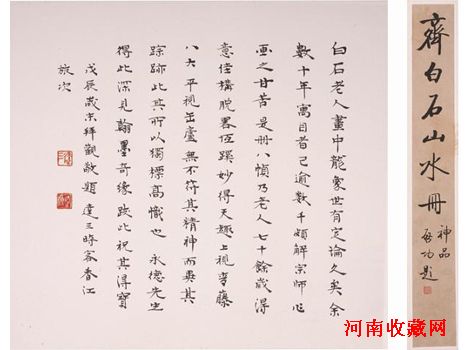 齊白石山水冊
神品
啟功題
白石老人畫中龍象世有定論久矣余
數十年寓目者已逾數千頗解宗師心
畫之甘苦是冊八幀乃老人七十餘歲得
意佳構脫略恆蹊妙得天趣上視青藤
八大平視缶廬無不符其精神而異其
蹤跡此其所以獨標高幟也 永德先生
得此深見翰墨奇緣跋此祝其得寶
戊辰歲末拜觀敬題 達三時客香江
旅次
河南收藏网